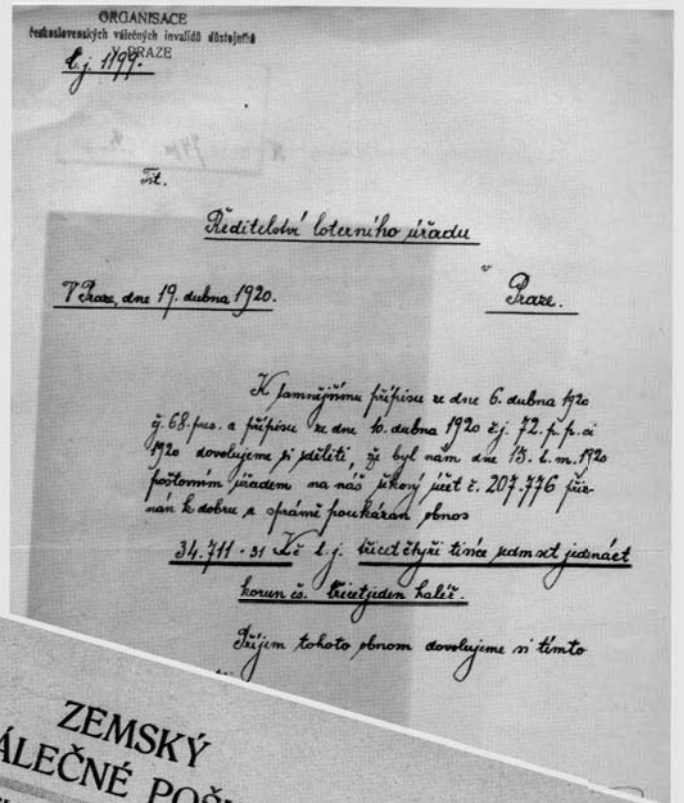 ORGANISACE
československých válečných invalidů důstojníků
V PRAZE
č.j. 1199.
Tit.
Ředitelství loterního úřadu
v
V Praze, dne 19. dubna 1920.
Praze.
K tamnějšímu přípisu ze dne 6. dubna 1920
čj. 68. pres. a přípisu ze dne 10. dubna 1920 č.j. 72.
1920 dovolujeme si sděliti, že byl nám dne 15. t. m. 1920
poštovním úřadem na náš šekový účet č. 207.776 přiz-
nán k dobru a správně poukázán obnos
34.711·31 Kč t.j. třicet čtyři tisíce sedmset jedenáct
korun čs. třicetjeden haléř.
Příjem tohoto obnosu dovolujeme si tímto
ZEMSKÝ
ÁLEČNÉ